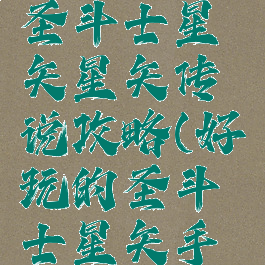 圣斗士星
矢星矢传
说攻略(好
玩的圣斗
士星矢手